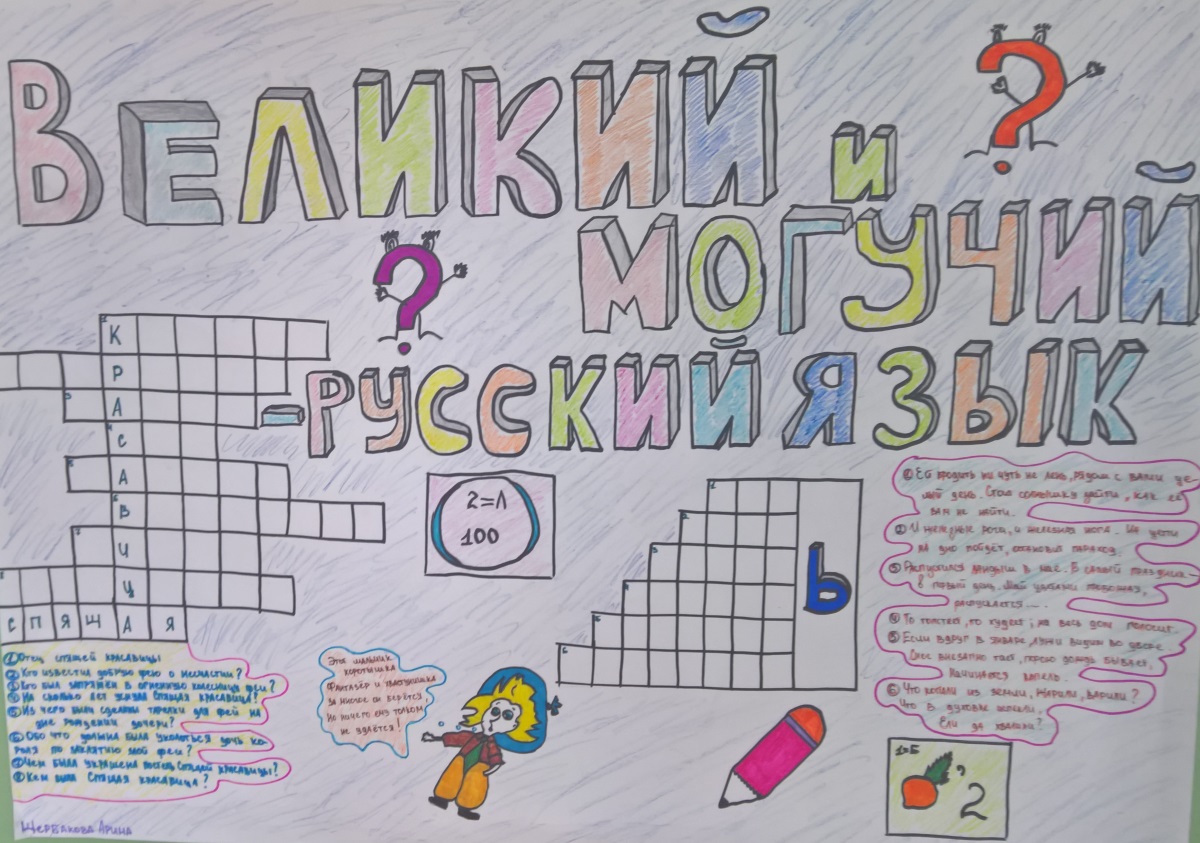 ВЕЛИКИЙ и
МОГУЧИЙ
-РУССКИЙ ЯЗЫК
К
Р
А
С
А
В
И
Ц
С П Я Щ А Я
2=Л
100
Ь
① Отец спящей красавицы
② Кто известил добрую фею о несчастии?
③ Кто был запряжён в огненную колесницу феи?
④ На сколько лет уснула спящая красавица?
⑤ Из чего были сделаны тарелки для фей на
дне рождении дочери?
⑥ Обо что должна была уколоться дочь ко-
роля по заклятию злой феи?
⑦ Чем была украшена постель спящей красавицы?
⑧ Кем была Спящая красавица?
Щербакова Арина
Этот мальчик
коротышка
Фантазёр и хвастунишка
За многое он берётся
Но ничего ему толком
не удаётся!
① Ей бродить ни чуть не лень, рядом с вами це-
лый день. Стоит солнышку зайти, как её
вам не найти.
② И железные рога, и железная нога. На
на дно пойдёт, остановит пароход.
③ Распустился в нас. В самый праздник-
в первый день.
распускается...
④ То толстеет, то худеет, на весь дом голосит.
⑤ Если вдруг в январе, лужи видим во дворе.
Снег внезапно тает, порою дождь бывает,
начинается капель.
⑥ Что копали из земли, жарили, варили?
Что в духовке пекли,
Ели да хвалили?
1=Б
, 2